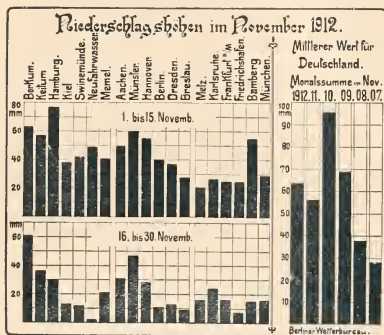 Niederschlagshöhen im November 1912.
Berkum.
Keitum
Hamburg.
Kiel
Swinemünde.
Neufahrwasser.
Memel.
Aachen.
Münster.
Hannover.
Berlin.
Dresden.
Breslau.
Metz.
Karlsruhe.
Frankfurt a/M.
Friedrichshafen.
Bamberg
München.
80
mm
60
40
20
1. bis 15. Novemb.
mm
60
40
20
16. bis 30. Novemb.
Mittlerer Wert für
Deutschland.
Monatssumme im Nov.
1912. 11. 10. 09. 08. 07.
100
mm
80
70
60
50
40
30
20
10
Berliner Wetterbureau.